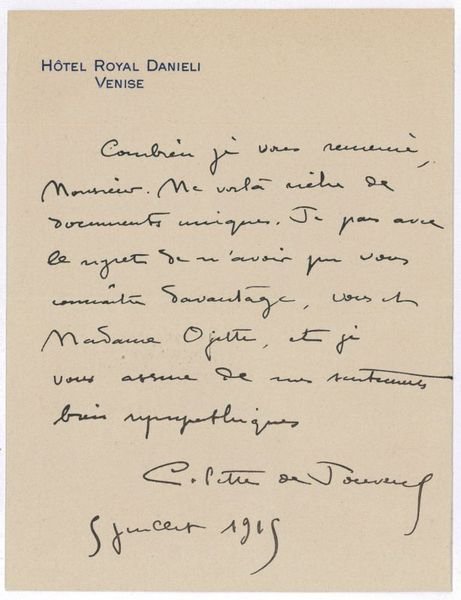 HÔTEL ROYAL DANIELI
VENISE
Combien je vous remercie,
Monsieur. Me voilà riche de
documents uniques. Je pars avec
le regret de n'avoir pu vous
connaître davantage, vous et
Madame Ojetti, et je
vous assure de mes sentiments
bien sympathiques
Colette de Jouvenel
5 juillet 1915